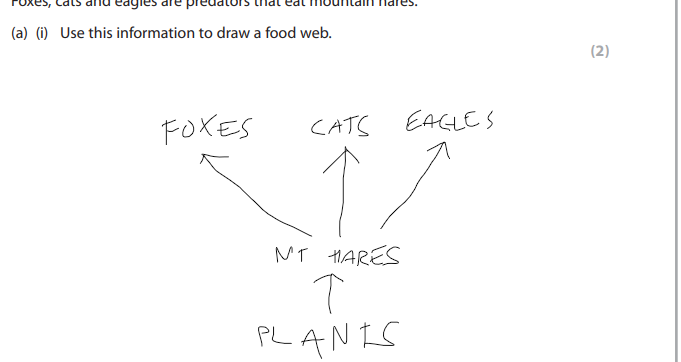 Foxes, cats and eagles are predators that eat mountain hares.
(a) (i) Use this information to draw a food web.
(2)
FOXES CATS EAGLES
MT HARES
PLANTS